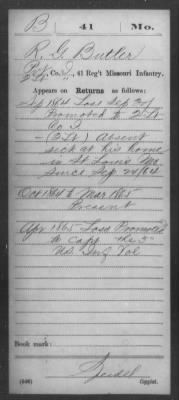 B 41 Mo.
R. G. Butler
Co. 41 Reg't Missouri Infantry.
Appears on Returns as follows:
Sep 1864 Loss Sep
Promoted to 2" Lt
Co
Absent
sick at his home
in St Louis Mo
since Sep 24/64
Oct 1864 to Mar 1865
Present
Apr 1865 Loss Promoted
to Capt the 5"
US Vol
Book mark:
(546) Copyist.